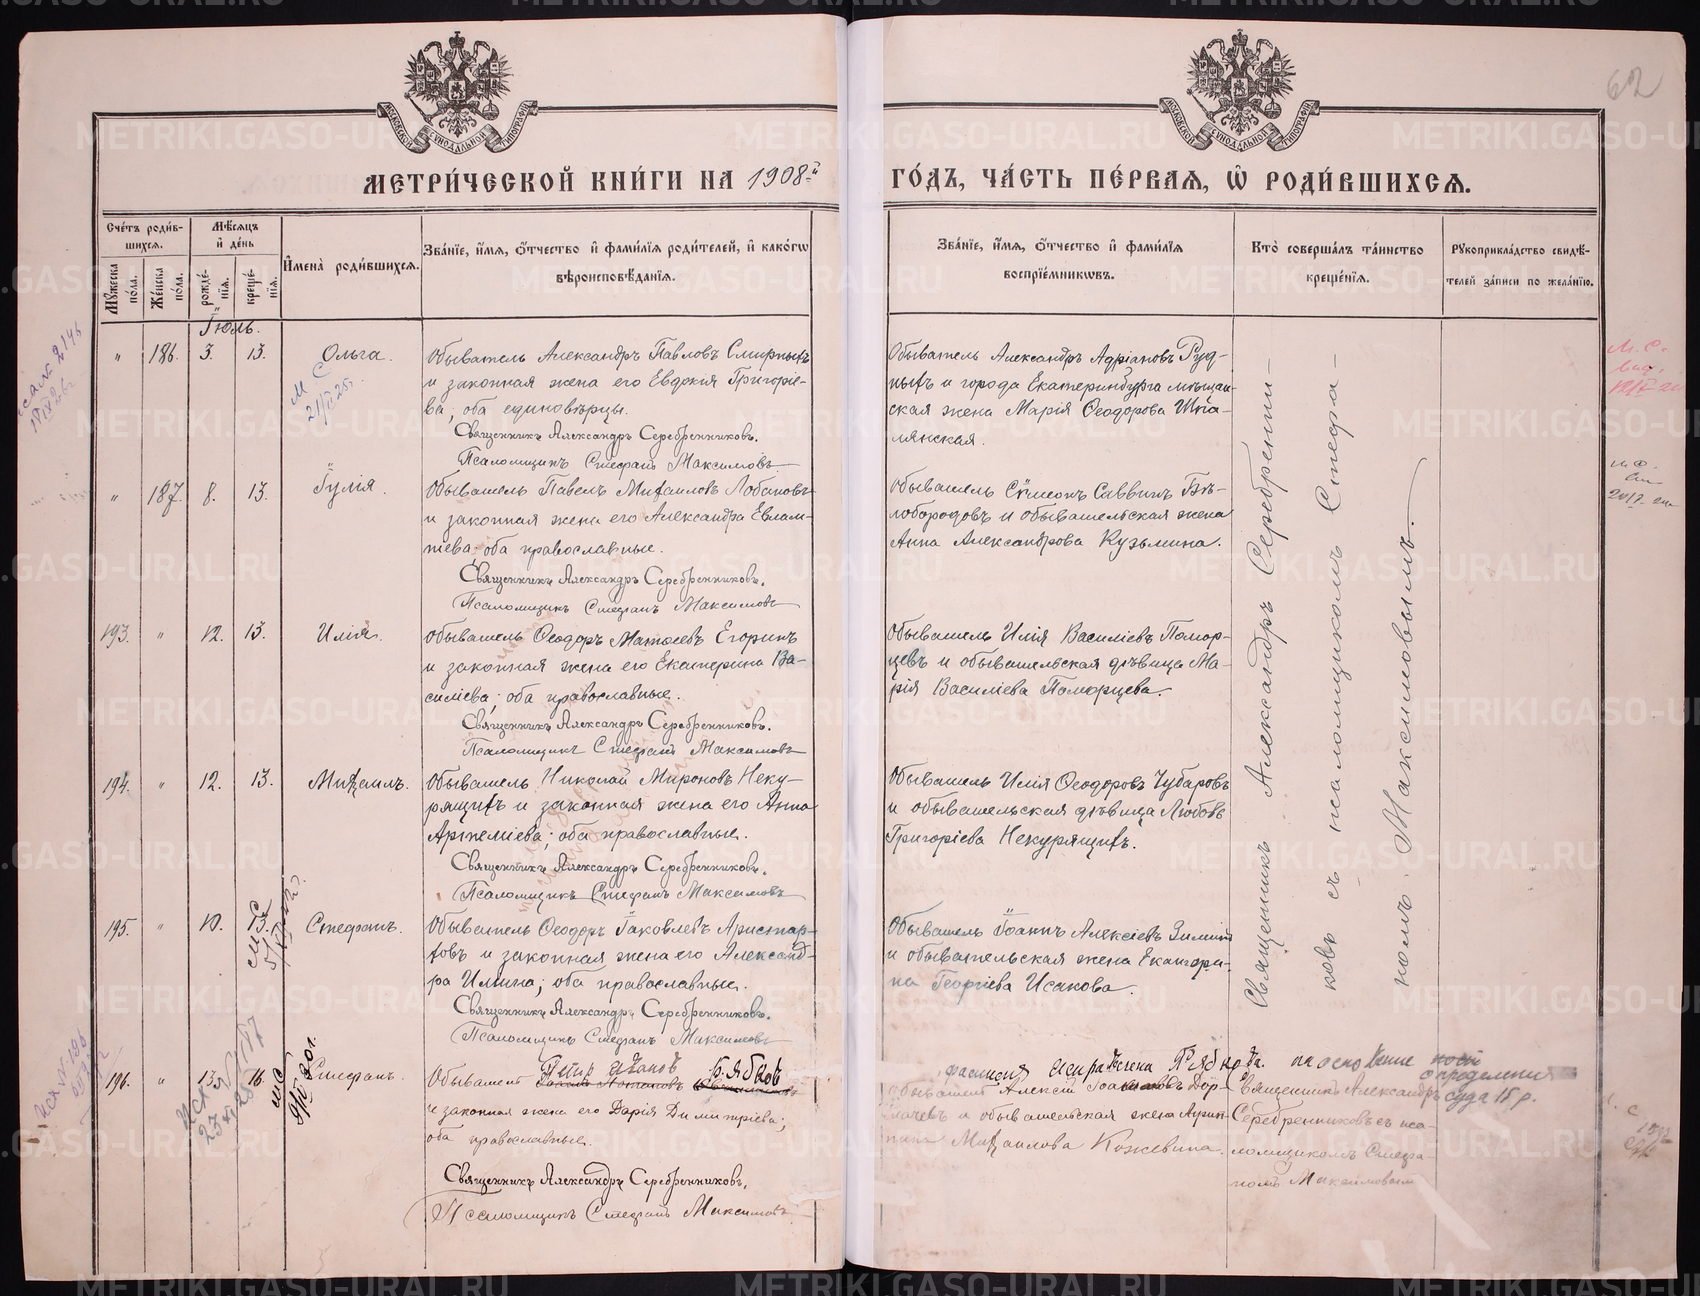 62
МОСКОВСКОЙ СѴНОДАЛЬНОЙ ТИПОГРАФІИ
МОСКОВСКОЙ СѴНОДАЛЬНОЙ ТИПОГРАФІИ
МЕТРИ́ЧЕСКОЙ КНИ́ГИ НА 1908й
ГО́ДЪ, ЧА́СТЬ ПЕ́РВАѦ, Ѡ҆ РОДИ́ВШИХСѦ.
Сче́тъ роди́в-
шихсѧ.
Мꙋжеска по́ла.
Же́нска по́ла.
Мѣ́сѧцъ
и҆ де́нь
рожде́-
нїѧ.
креще́-
нїѧ.
И҆мена̀ роди́вшихсѧ.
Зва́нїе, и҆́мѧ, ѻ҆́тчество и҆ фами́лїѧ роди́телей, и҆ како́гѡ
вѣроисповѣ́данїѧ.
Зва́нїе, и҆́мѧ, ѻ҆́тчество и҆ фами́лїѧ
воспрїе́мникѡвъ.
Кто̀ соверша́лъ та́инство
креще́нїѧ.
Рꙋкоприкла́дство свидѣ́-
телей за́писи по жела́нїю.
Іюль.
" 186. 3. 13. Ольга.
Обыватель Александръ Павловъ Смирныхъ
и законная жена его Евдокія Григоріе-
ва, оба единовѣрцы.
Священникъ Александръ Серебренниковъ.
Псаломщикъ Стефанъ Максимовъ
Обыватель Александръ Адріановъ Руд-
ныхъ и города Екатеринбурга мѣщан-
ская жена Марія Ѳеодорова
лянская.
" 187. 8. 13. Іулія.
Обыватель Павелъ Михаиловъ Лобановъ
и законная жена его Александра Евлам-
піева, оба православные.
Священникъ Александръ Серебренниковъ.
Псаломщикъ Стефанъ Максимовъ
Обыватель Сѵмеонъ Саввинъ Бѣ-
лобородовъ и обывательская жена
Анна Александрова Кузьмина.
193. " 12. 13. Илія.
Обыватель Ѳеодоръ Матѳеевъ Егоринъ
и законная жена его Екатерина Ва-
силіева; оба православные.
Священникъ Александръ Серебренниковъ.
Псаломщикъ Стефанъ Максимовъ
Обыватель Илія Василіевъ Помор-
цевъ и обывательская дѣвица Ма-
рія Василіева Поморцева.
194. " 12. 13. Михаилъ.
Обыватель Николай Мироновъ Неку-
рящихъ и законная жена его Анна
Артеміева; оба православные.
Священникъ Александръ Серебренниковъ.
Псаломщикъ Стефанъ Максимовъ
Обыватель Илія Ѳеодоровъ Чубаровъ
и обывательская дѣвица Любовь
Григоріева Некурящихъ.
195. " 10. 13. Стефанъ.
Обыватель Ѳеодоръ Іаковлевъ Аристар-
ховъ и законная жена его Александ-
ра Илиина; оба православные.
Священникъ Александръ Серебренниковъ.
Псаломщикъ Стефанъ Максимовъ
Обыватель Іоаннъ Алексіевъ Зиминъ
и обывательская жена Екатери-
на Георгіева Исакова.
Священникъ Александръ Серебренни-
ковъ съ псаломщикомъ Стефа-
номъ Максимовымъ.
196. " 13. 16. Стефанъ.
Петр Иванов Рябков
Обыватель
и законная жена его Дарія Димитріева;
оба православные.
Священникъ Александръ Серебренниковъ.
Псаломщикъ Стефанъ Максимовъ
фамилия исправлена на основание
определения
суда
Обыватель Алексій
и обывательская жена
Михаилова Кожевина.
Священникъ Александръ
Серебренниковъ съ пса-
ломщикомъ Стефа-
номъ Максимовымъ